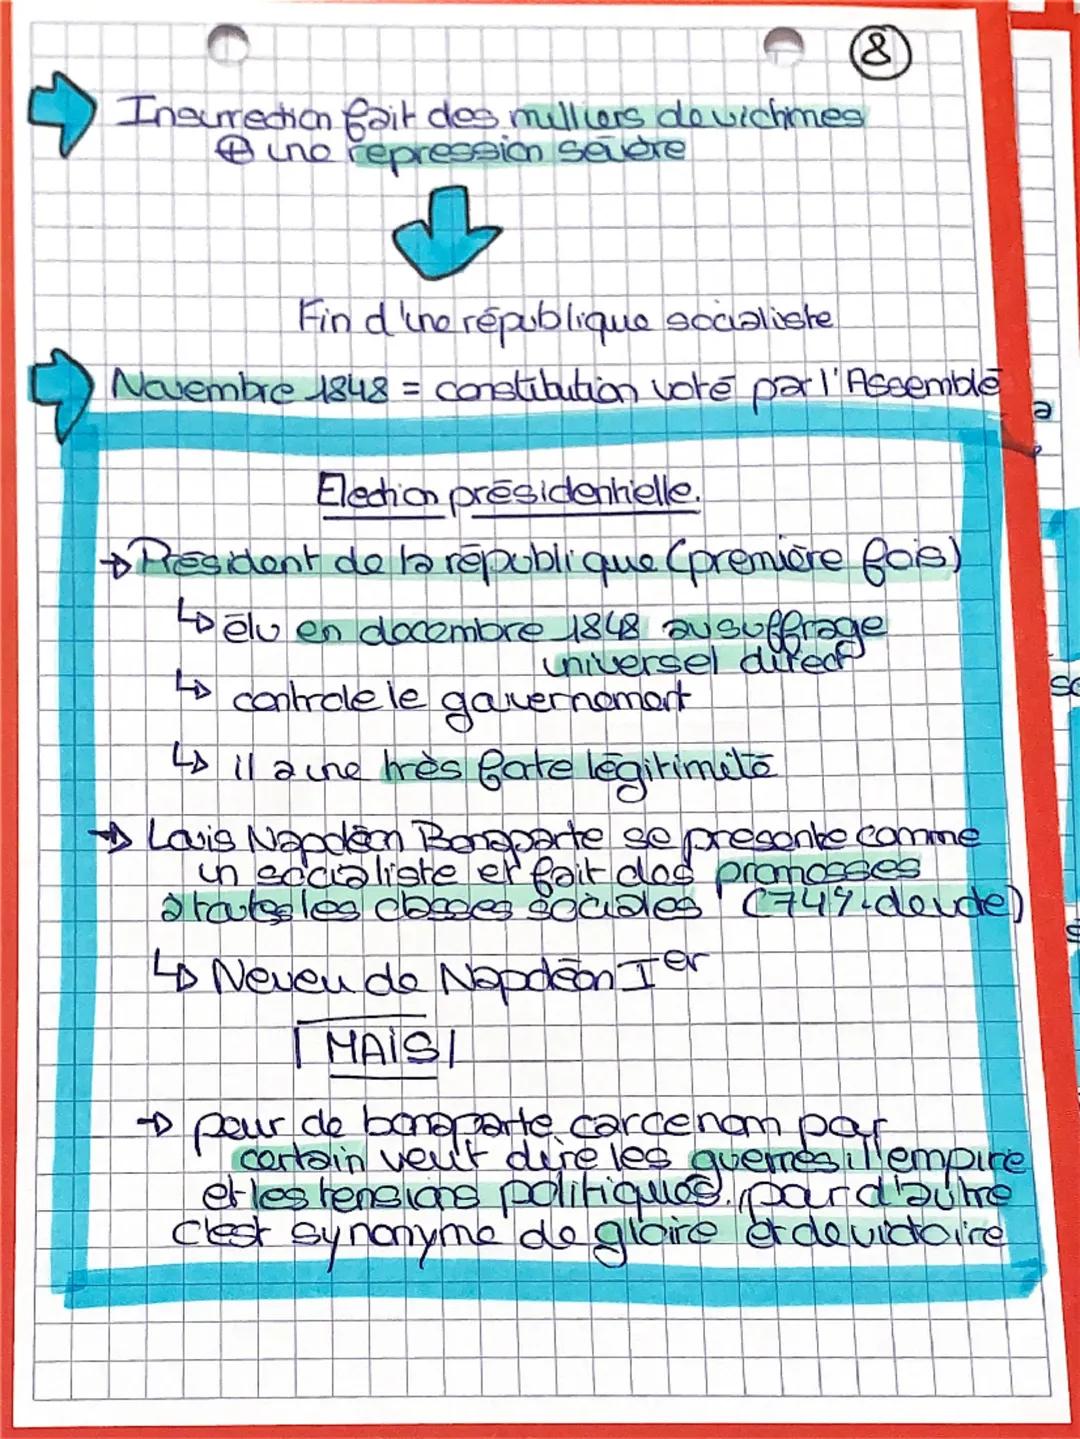 8
Insurrection fait des milliers de victimes
⊕ une répression sévère
Fin d'une république socialiste
Novembre 1848 = constitution voté par l'Assemblé
a
Election présidentielle.
→ Président de la république (première fois)
↳ élu en decembre 1848 au suffrage
universel direct
↳ controle le gouvernement
↳ il a une très forte légitimité
→ Louis Napoléon Bonaparte se presente comme
un socialiste et fait des promesses
à toutes les classes sociales (74% de vote)
↳ Neveu de Napoléon Ier
MAIS
→ peur de bonaparte car ce nom par
certain veut dire les guerres, l'empire
et les tensions politiques, pour d'autre
c'est synonyme de gloire et de victoire